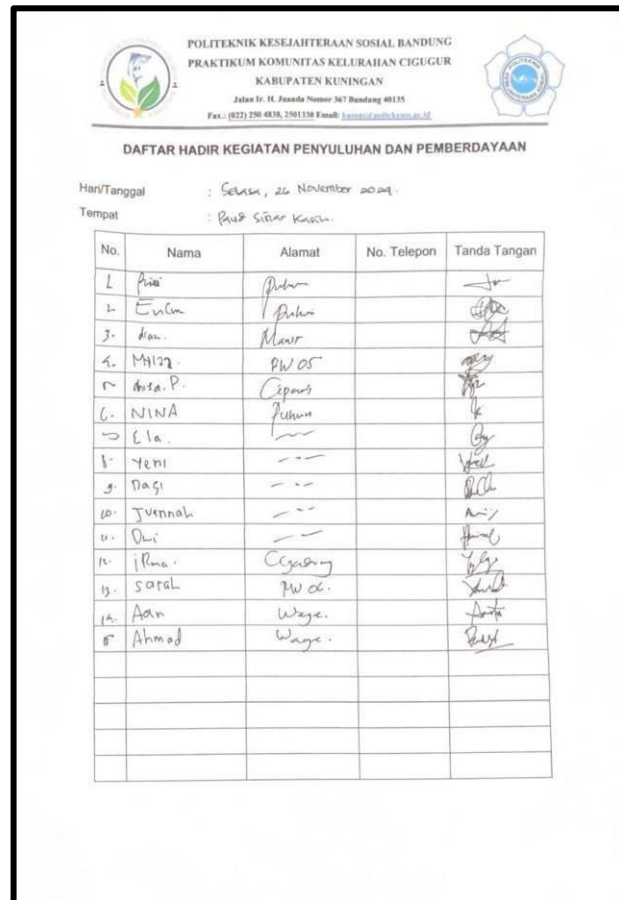 POLITEKNIK KESEJAHTERAAN SOSIAL BANDUNG
PRAKTIKUM KOMUNITAS KELURAHAN CIGUGUR
KABUPATEN KUNINGAN
Jalan Ir. H. Juanda Nomor 367 Bandung 40135
Fax.: (022) 250 4838, 2501330 Email: humas@poltekesos.ac.id
DAFTAR HADIR KEGIATAN PENYULUHAN DAN PEMBERDAYAAN
Hari/Tanggal : Selasa, 26 November 2024.
Tempat : Paud Sinar Kasih.
No. Nama Alamat No. Telepon Tanda Tangan
1 Puhun
2 Puhun
3. dian. Manis
4. RW 05
5
6. NINA Puhun
7 Ela.
8. Yeni
9.
10. Juennah
11. Dwi
12. iRma.
13. Sarah RW 06.
14. Aan Wage.
15 Ahmad Wage.